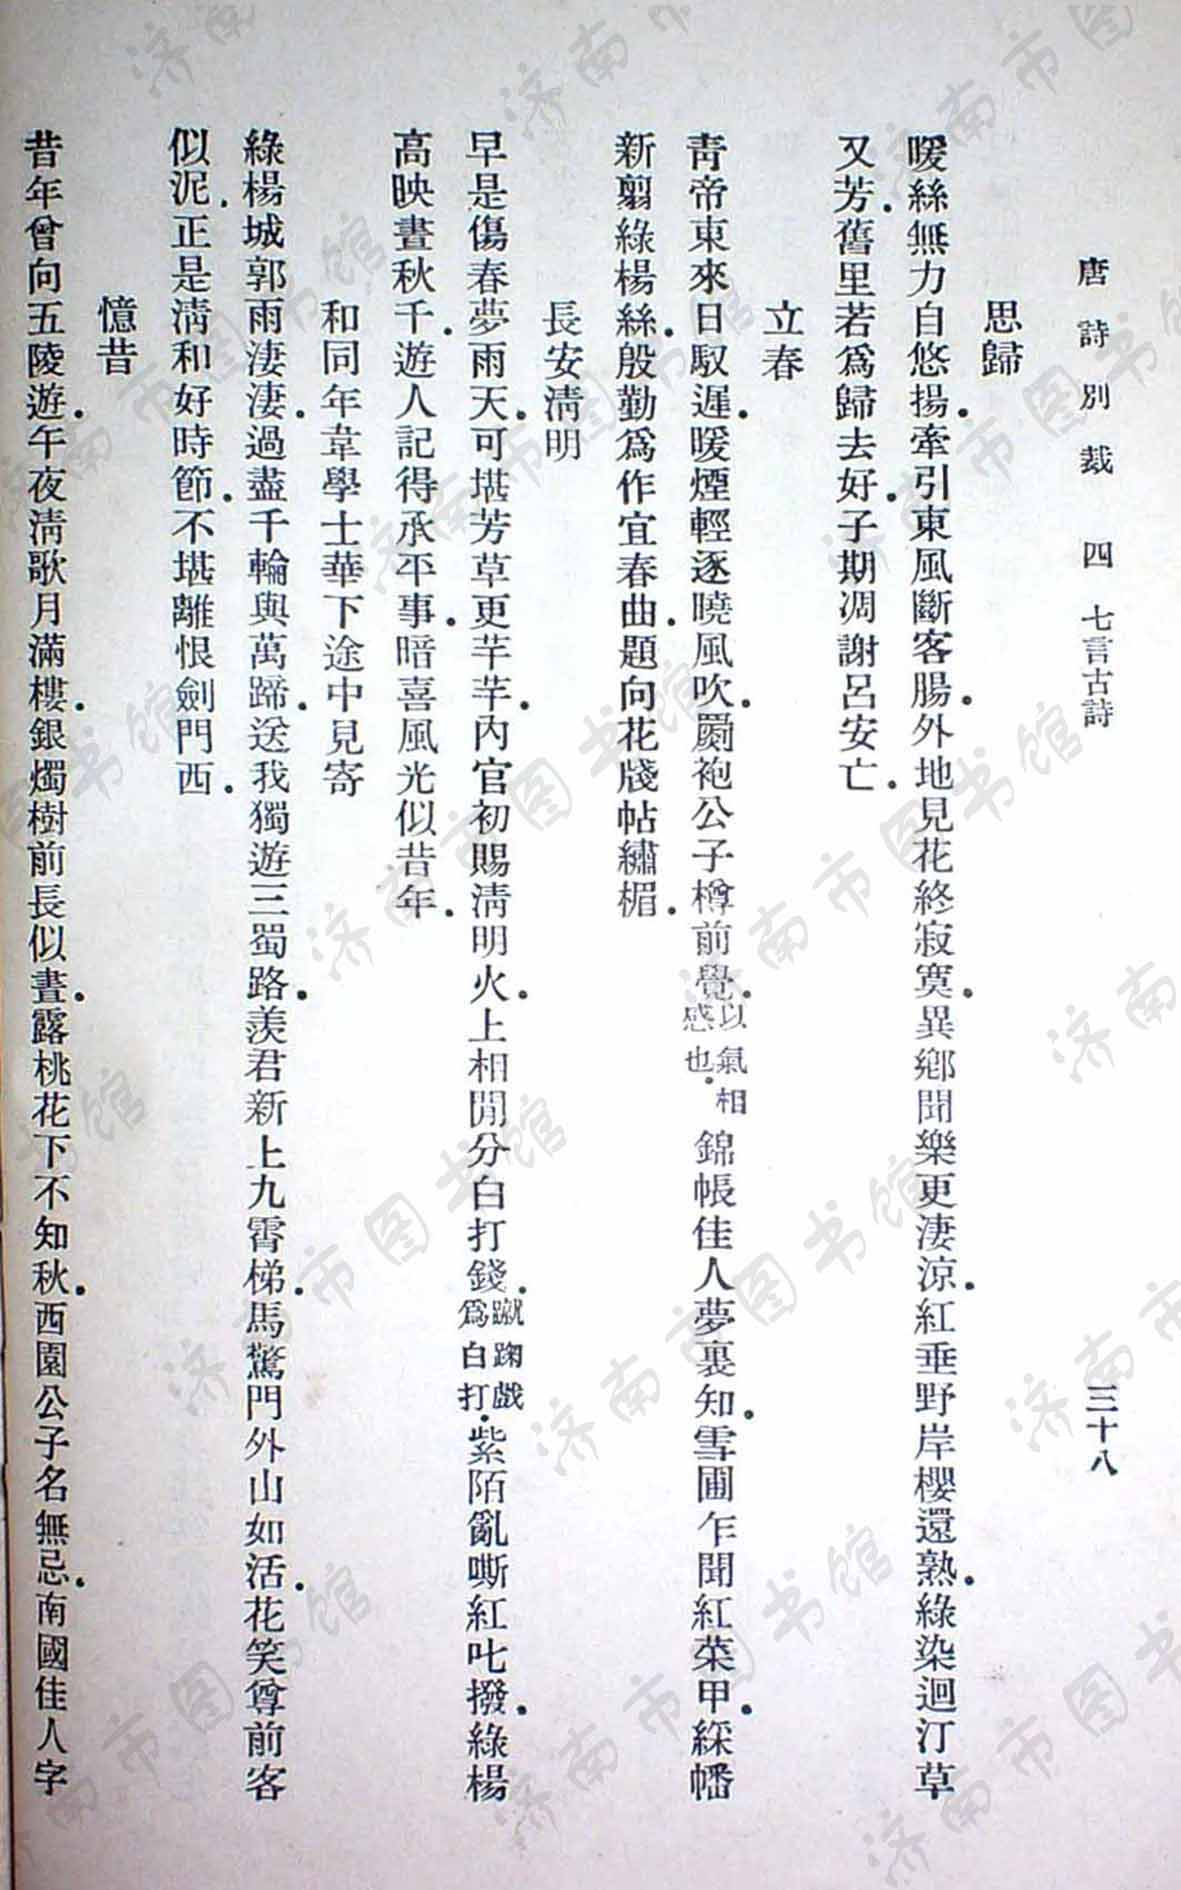 唐詩別裁 四 七言古詩 三十八
思歸
暖絲無力自悠揚．牽引東風斷客腸．外地見花終寂寞．異鄉聞樂更淒涼．紅垂野岸櫻還熟．綠染迴汀草
又芳．舊里若爲歸去好．子期凋謝呂安亡．
立春
青帝東來日馭遲．暖煙輕逐曉風吹．罽袍公子樽前覺．以氣相感也．錦帳佳人夢裏知．雪圃乍聞紅菜甲．綵幡
新翦綠楊絲．殷勤爲作宜春曲．題向花牋帖繡楣．
長安清明
早是傷春夢雨天．可堪芳草更芊芊．內官初賜清明火．上相閒分白打錢．蹴踘戲爲白打．紫陌亂嘶紅叱撥．綠楊
高映晝秋千．遊人記得承平事．暗喜風光似昔年．
和同年韋學士華下途中見寄
綠楊城郭雨淒淒．過盡千輪與萬蹄．送我獨遊三蜀路．羨君新上九霄梯．馬驚門外山如活．花笑尊前客
似泥．正是清和好時節．不堪離恨劍門西．
憶昔
昔年曾向五陵遊．午夜清歌月滿樓．銀燭樹前長似晝．露桃花下不知秋．西園公子名無忌．南國佳人字
济南市图书馆